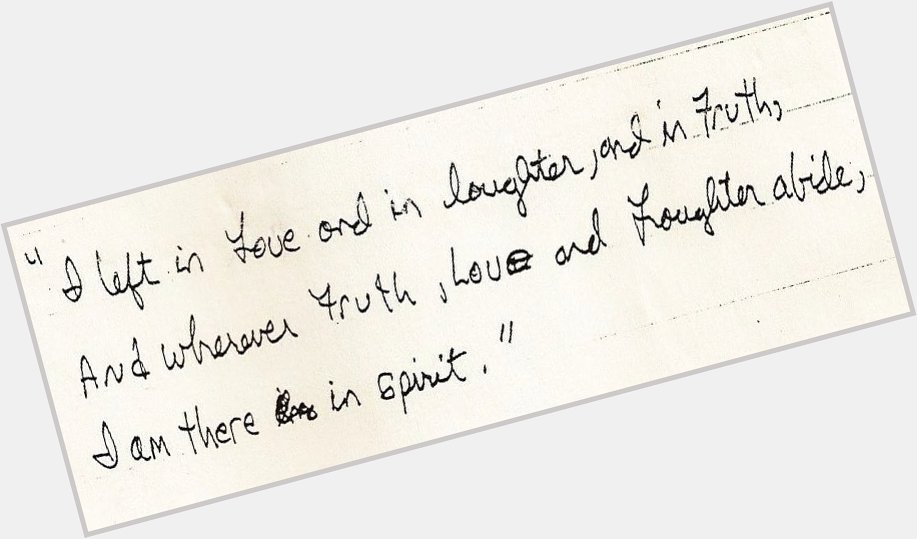 "I left in Love and in laughter, and in Truth,
And wherever Truth, Love and Laughter abide,
I am there in spirit."